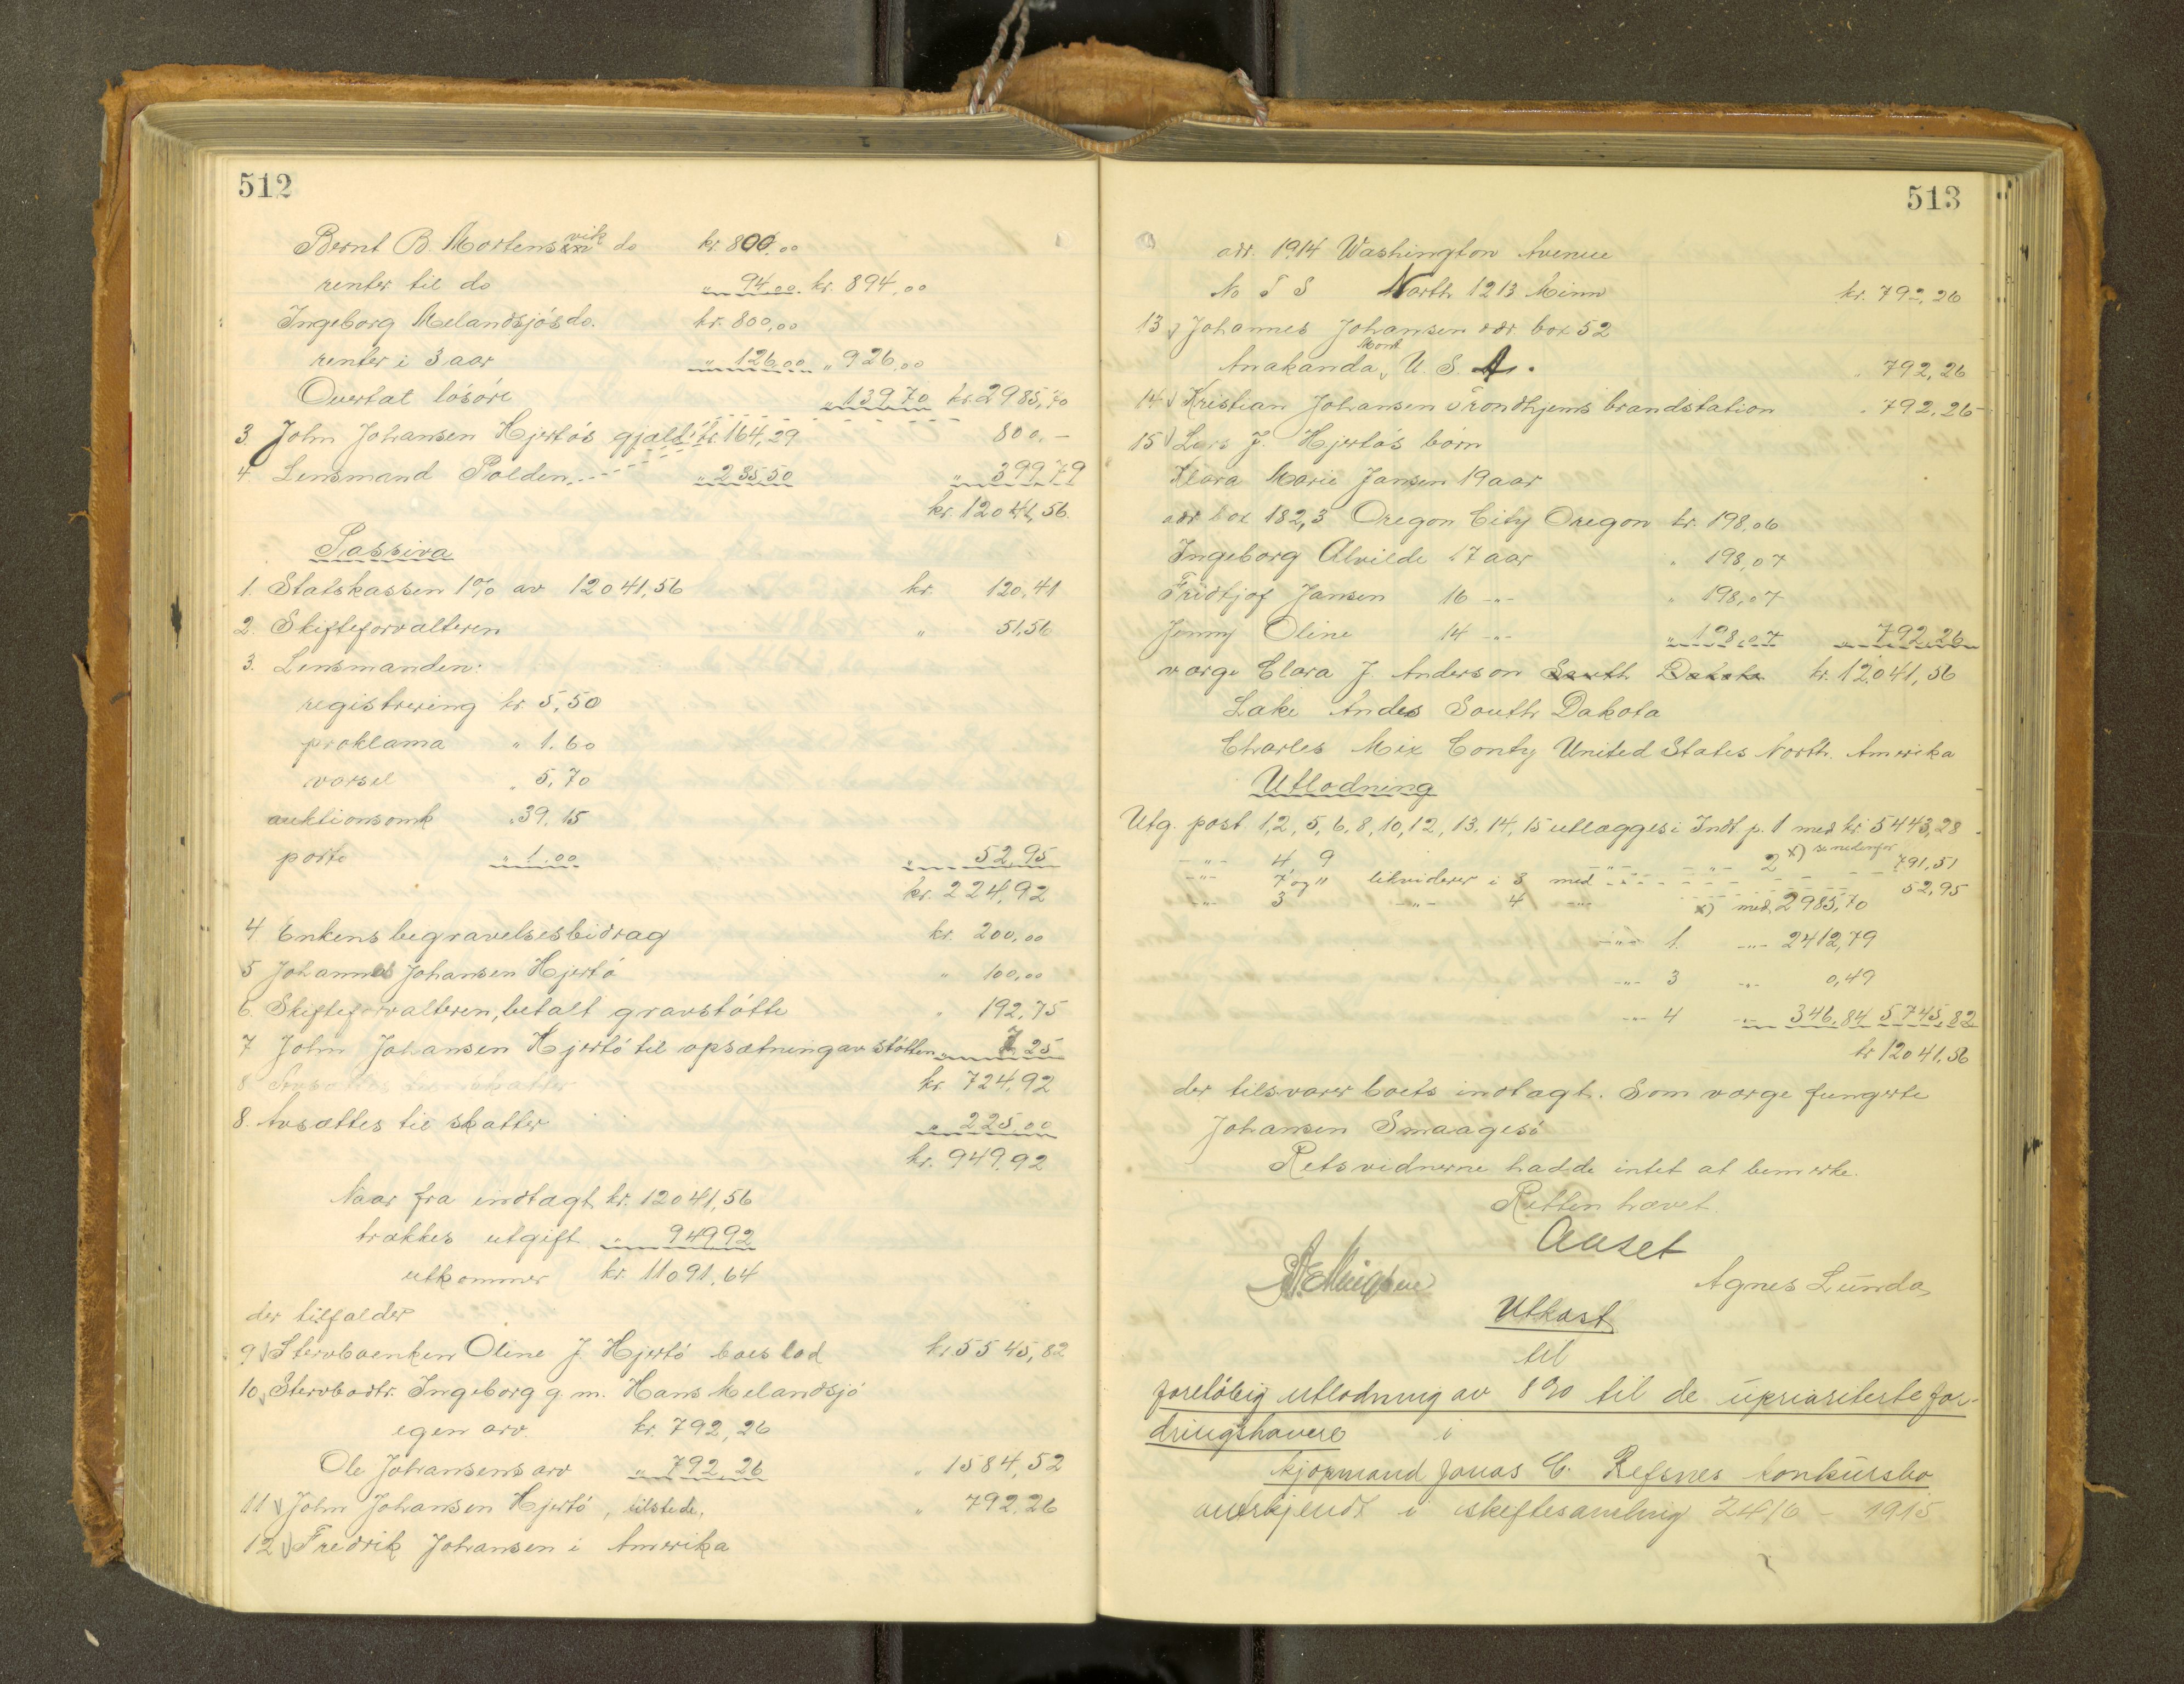 512
Bernt B. Mortensvik do kr. 800,00
renter til do " 94.00. kr. 894,00
Ingeborg Melandsjøs do. kr. 800,00
renter i 3 aar " 126,00 " 926,00
Overtat løsøre " 139 70 kr. 2985,70
3. John Johansen Hjertøs gjæld kr. 164,29 800,-
4 Lensmand Polden " 235,50 " 399,79
kr. 12041,56
Passiva
1. Statskassen 1% av 12041,56 kr. 120,41
2. Skifteforvalteren " 51,56
3. Lensmanden:
registrering kr. 5,50
proklama " 1.60
varsel " 5,70
auktionsomk " 39.15
porto " 1.00 " 52,95
kr. 224,92
4 Enkens begravelsesbidrag kr. 200,00
5 Johannes Johansen Hjertø " 100,00
6. Skifteforvalteren, betalt gravstøtte " 192,75
7 John Johansen Hjertø til opsætning av støtten " 7 25
kr. 724,92
8. Avsættes til skatter " 225,00
kr. 949,92
Naar fra indtægt kr. 12041,56
trækkes utgift " 949 92
utkommer kr. 11091,64
der tilfalder
9 Stervboenken Oline J. Hjertø boeslod kr. 5545,82
10, Stervbodtr. Ingeborg g. m. Hans Melandsjø
egen arv. kr. 792,26
Ole Johansens arv " 792,26 " 1584,52
11 John Johansen Hjertø, tilstede, " 792,26
12 Fredrik Johansen i Amerika
513
adr. 1914 Washington Avenue
No T S North 1213 Minn kr. 792,26
13, Johannes Johansen adr. box 52
Anakanda, Mont U. S. A. " 792,26
14 Kristian Johansen Trondhjems brandstation " 792,26
15 Lars J. Hjertøs børn
Klara Marie Jansen 19 aar
adr box 182,3 Oregon City Oregon kr. 198,06
Ingeborg Alvilde 17 aar " 198,07
Fridtjof Jansen 16 -"- " 198,07
Jenny Oline 14 -"- " 198,07 " 792,26
værge Clara J. Anderson South Dakota kr. 12041,56
Lake Andes South Dakota
Charles Mix Conty United States North. Amerika
Utlodning
Utg. post 1,2,5,6,8,10,12,13,14,15 utlægges i Indt p. 1 med kr. 5443,28
-"- 4 9 -"- -"- 2 x) se nedenfor
-"- 7 og 11 likviderer i 3 med 791,51
-"- 3 -"- 4 -"- 52,95
x) med 2985,70
-"- 1. -"- 2412,79
-"- 3 -"- 0,49
-"- 4 -"- 346,84 5745,82
kr 12041,56
der tilsvarer boets indtægt. Som værge fungerte
Johansen Smaagesø
Retsvidnerne hadde intet at bemerke.
Retten hævet.
Aaset
Agnes Lunda
Utkast
til
foreløbig utlodning av 8% til de upriøriterte for-
dringshavere i
kjøpmand Jonas C. Refsnes konkursbo
anerkjendt i skiftesamling 24/6 - 1915